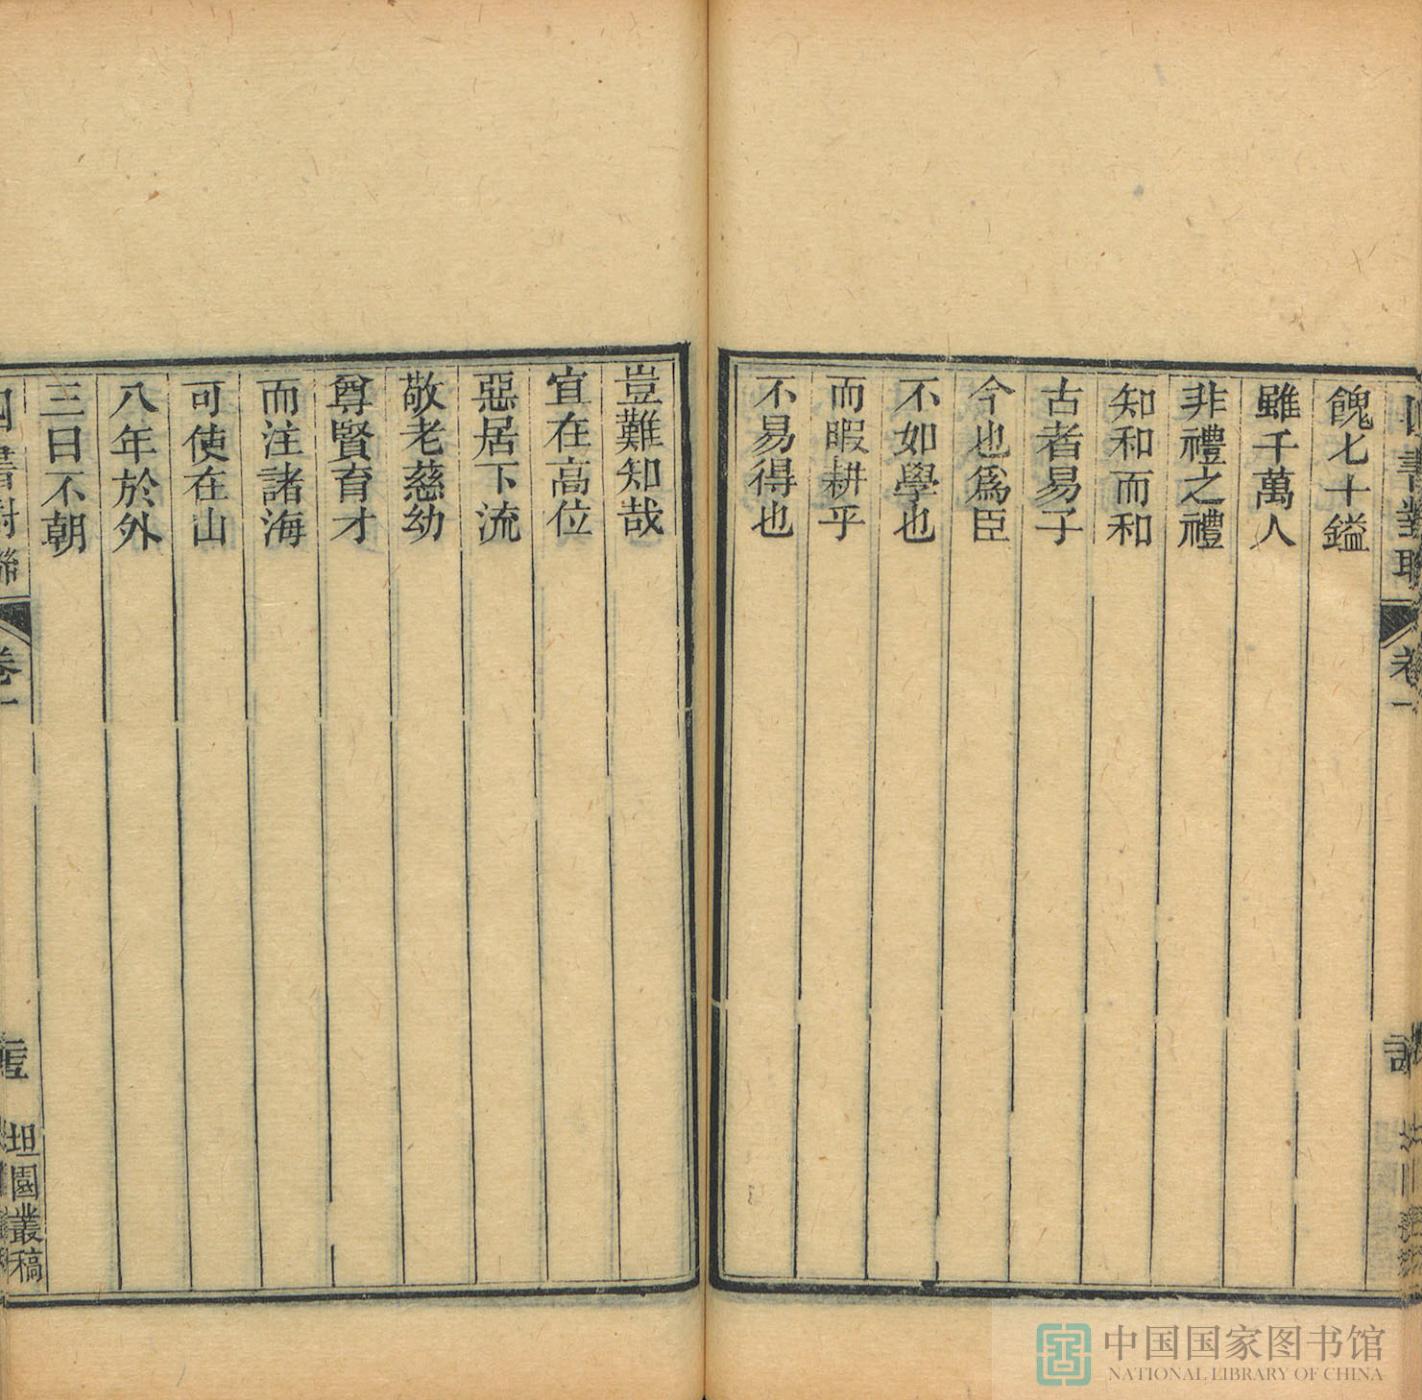 四書對聯
卷一
餽七十鎰
雖千萬人
非禮之禮
知和而和
古者易子
今也爲臣
不如學也
而暇耕乎
不易得也
豈難知哉
宜在高位
惡居下流
敬老慈幼
尊賢育才
而注諸海
可使在山
八年於外
三日不朝
四書對聯
卷一
坦園叢稿
中国国家图书馆
NATIONAL LIBRARY OF CHINA